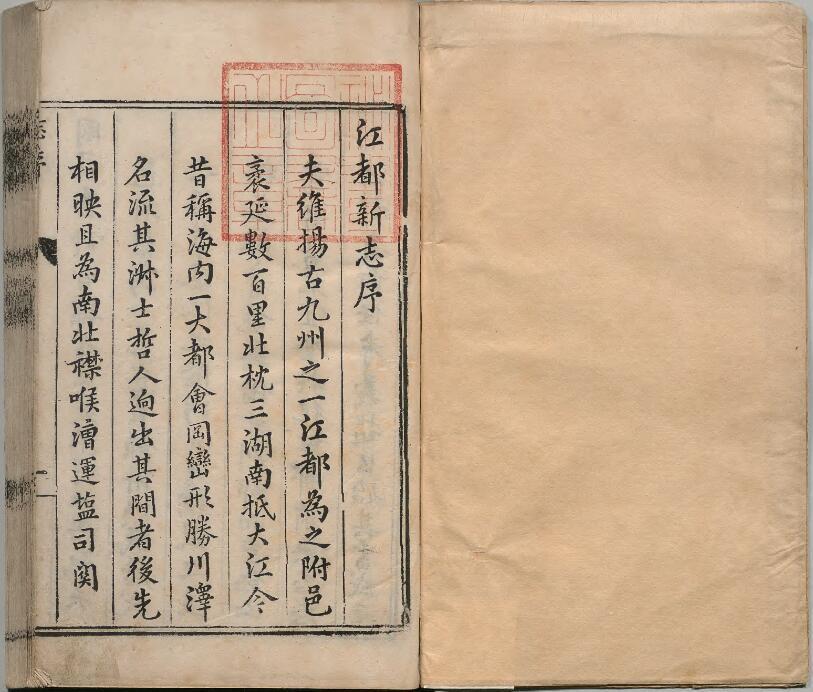 江都新志序
夫維揚古九州之一江都為之附邑
袤延數百里北枕三湖南抵大江今
昔稱海内一大都會岡巒形勝川澤
名流其淋士哲人逈出其間者後先
相映且為南北襟喉漕運塩司関